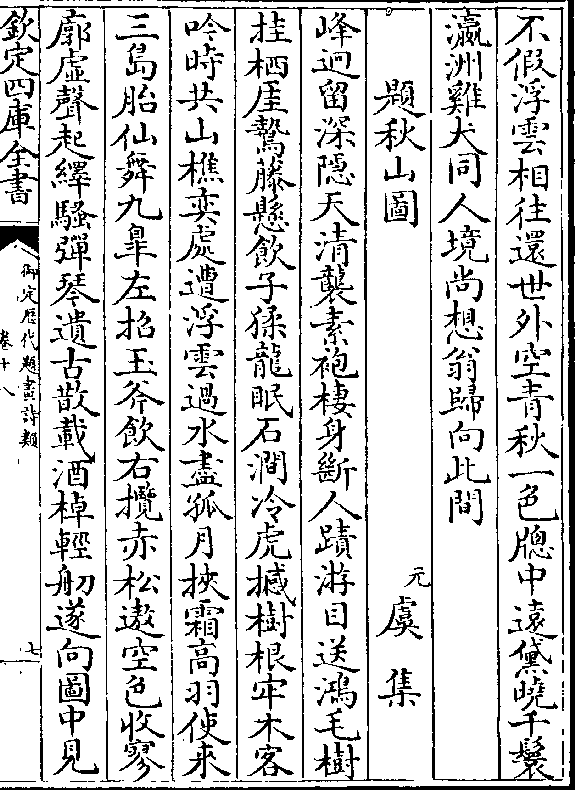 不假浮雲相往還世外空青秋一色牕中遠黛曉千鬟
瀛洲雞犬同人境尚想翁歸向此間
題秋山圖
元 虞集
峰迴留深隱天清襲素袍棲身斷人蹟游目送鴻毛樹
挂栖厓鷙藤懸飲子猱龍眠石澗冷虎撼樹根牢木客
吟時共山樵奕處遭浮雲過水盡孤月挾霜高羽使來
三島胎仙舞九皐左招玉斧飲右攬赤松遨空色收寥
廓虛聲起繹騷彈琴遺古散載酒棹輕舠遂向圖中見
欽定四庫全書
御定歷代題畫詩類
卷十八
七